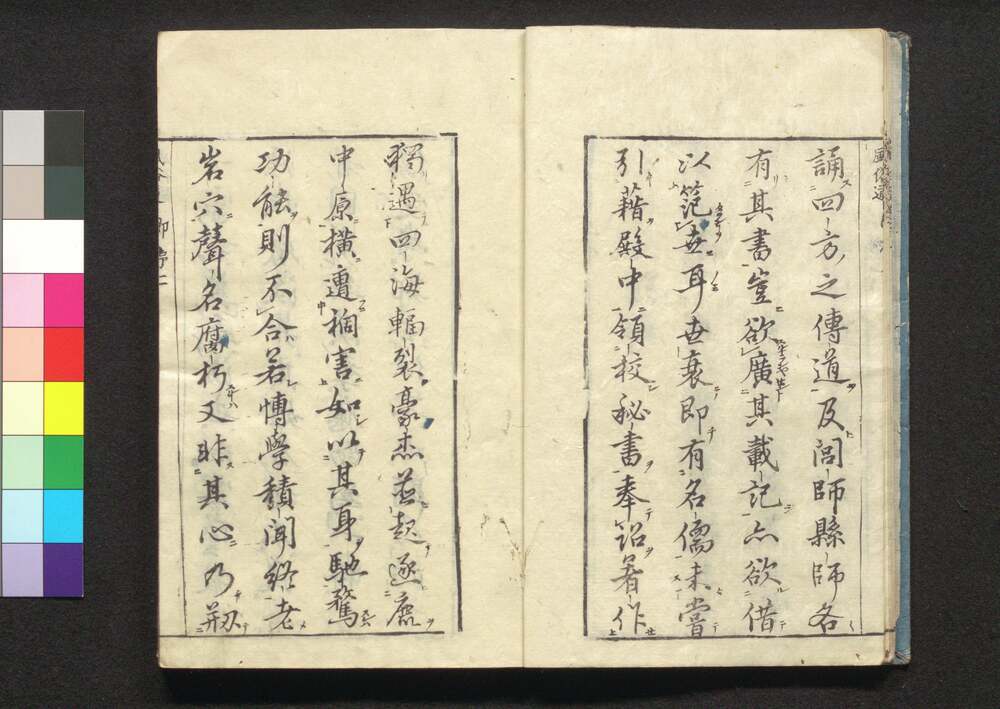 誦四方之傳道及閭師縣師各
有其書豈欲廣其載記亦欲借
以範世耳世衰即有名儒未嘗
引藉殿中領校秘書奉詔著作
獨遇四海輻裂豪杰並起逐鹿
中原橫遭禍害如以其身馳騖
功能則不合若博學積聞終老
岩穴聲名腐朽又非其心乃剏